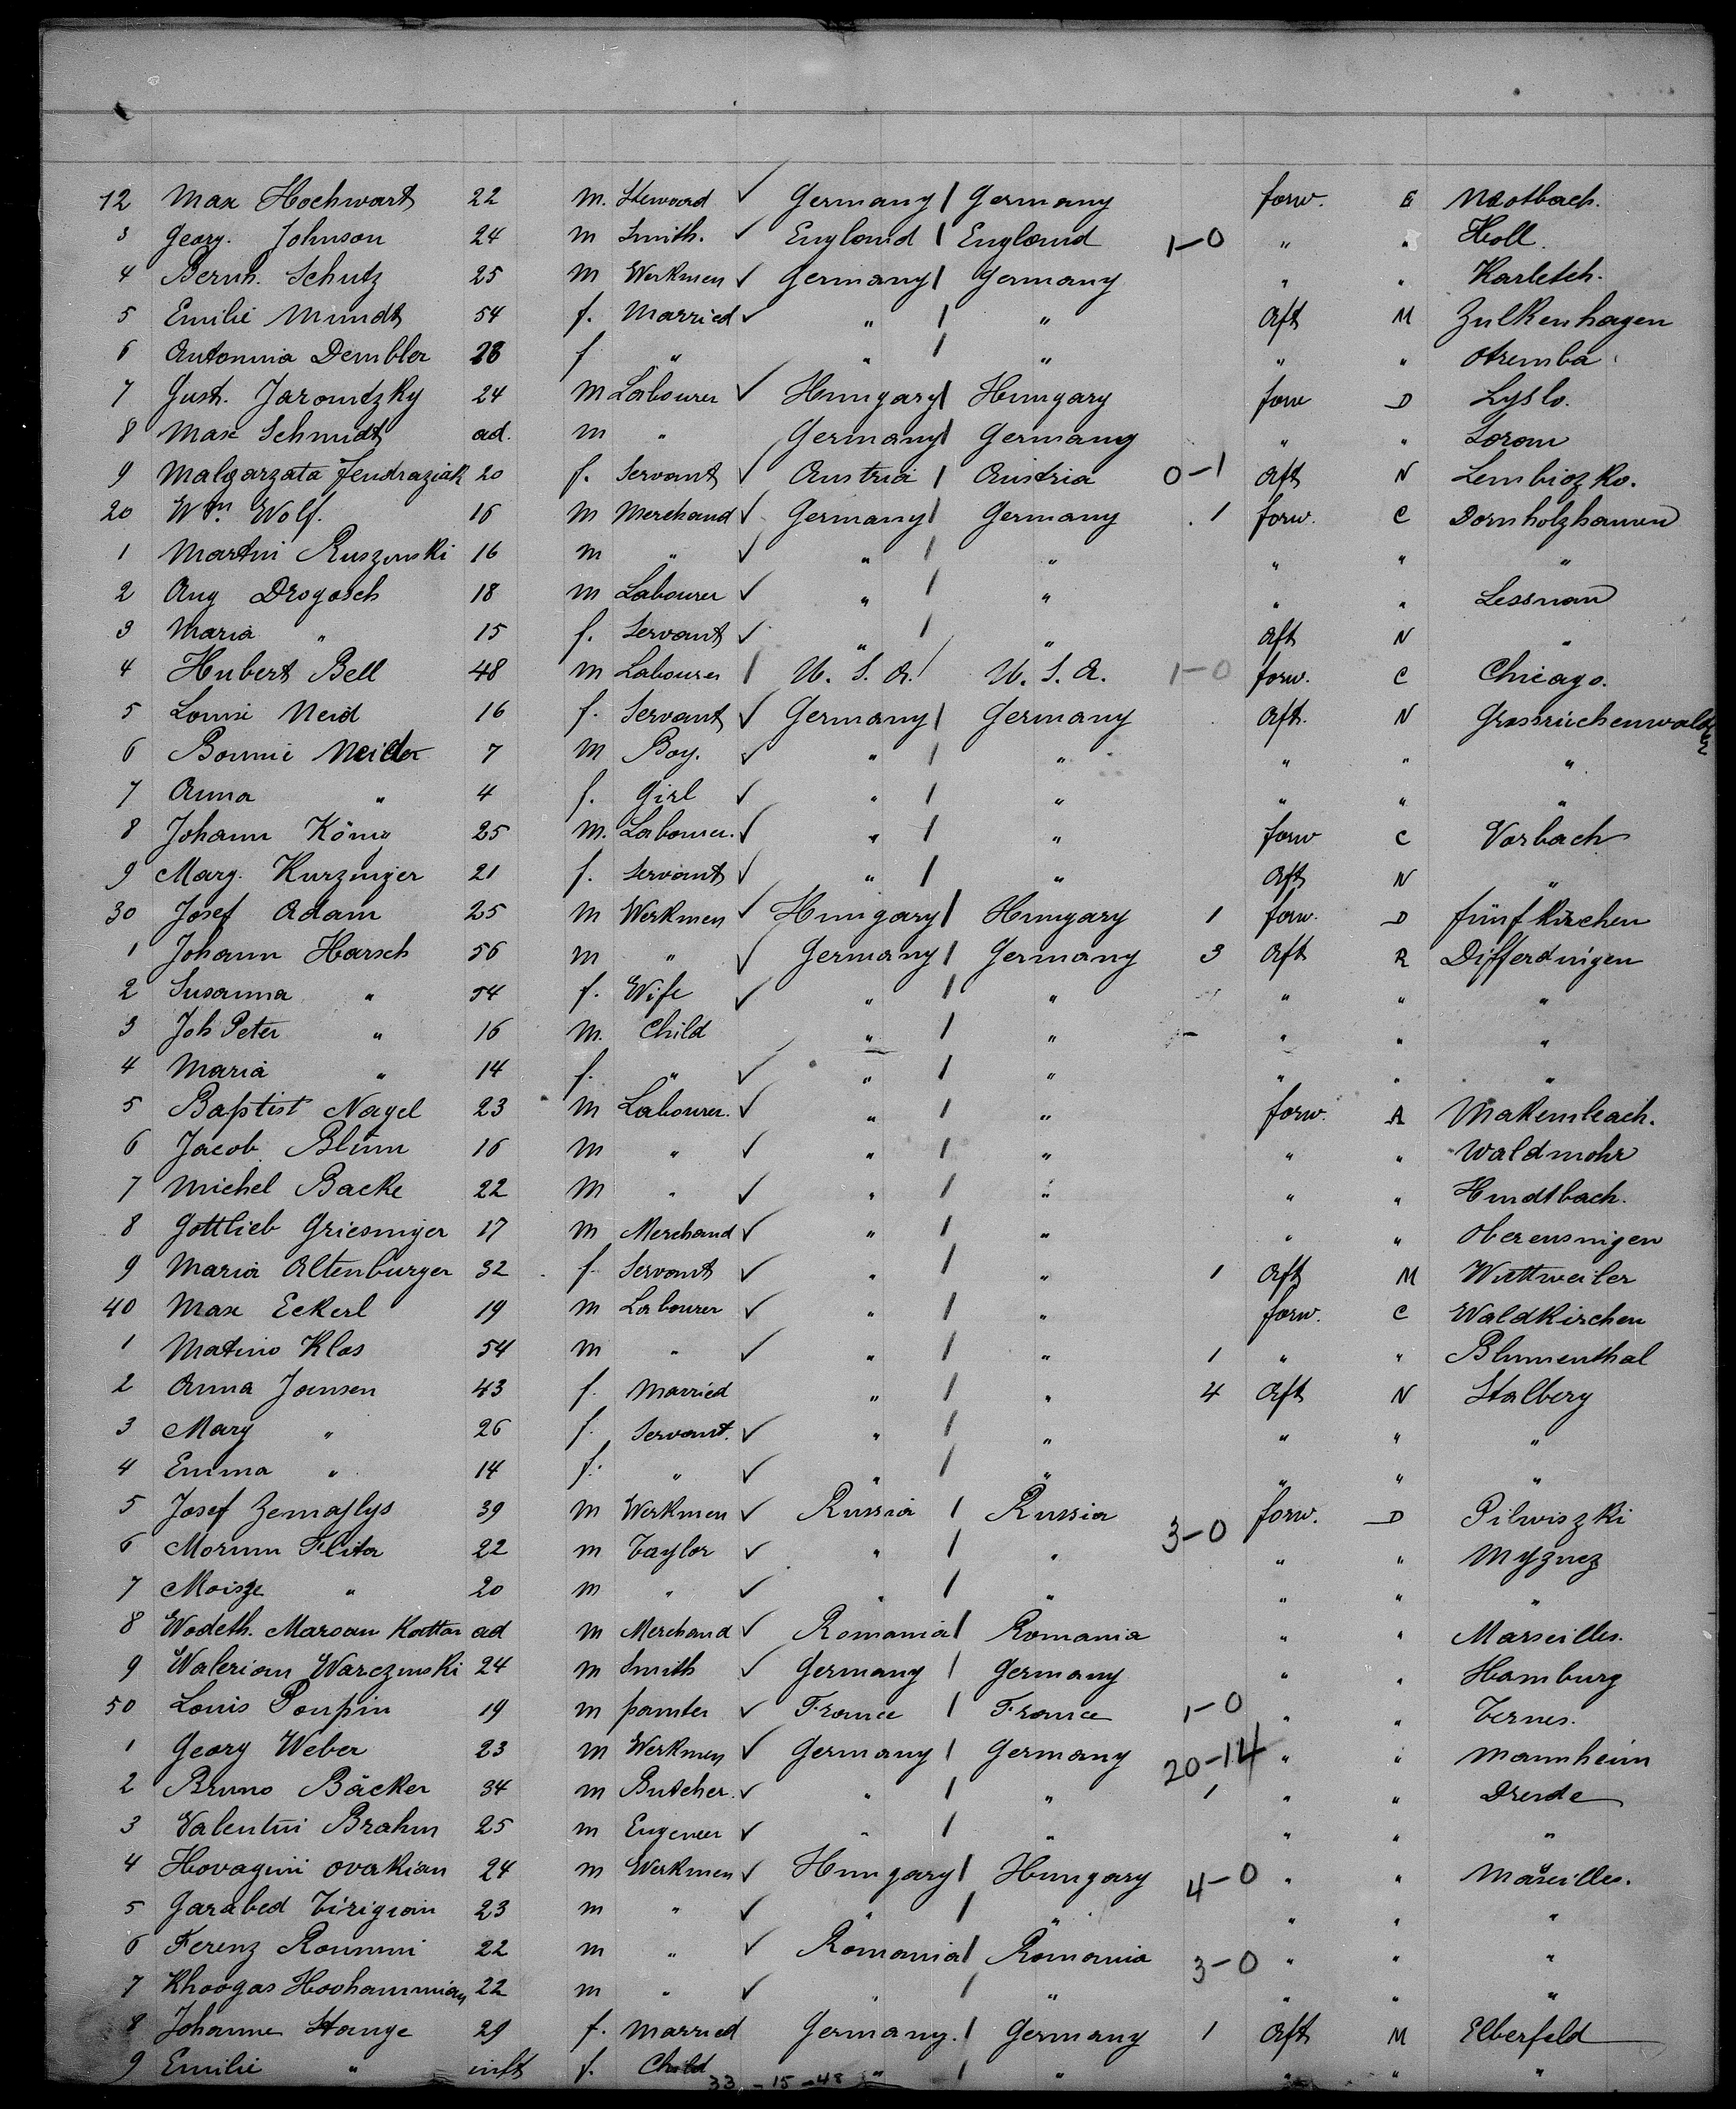 12 Max Hochwart 22 m. Steward ✓ Germany / Germany forw. E Mostbach.
3 Georg. Johnson 24 m Smith. ✓ England / England 1-0 " " Holl.
4 Bernh. Schutz 25 m Werkmen ✓ Germany / Germany " " Karletch.
5 Emilie Mundt 54 f. Married ✓ " / " Aft M Zulkenhagen
6 Antonnia Dembler 28 f " " / " " " Otremba
7 Gust. Jaromtzky 24 m Labourer ✓ Hungary / Hungary forw D Lyslo.
8 Max Schmidt ad. m " Germany / Germany " " Lorom
9 Malgarzata Jendraziak 20 f. Servant ✓ Austria / Austria 0-1 Aft N Lembiozko.
20 Wm. Wolf. 16 m Merchand ✓ Germany / Germany 1 forw. C Dornholzhausen
1 Martin Ruszinski 16 m " ✓ " / " " " "
2 Aug Drogosch 18 m Labourer ✓ " / " " " Lessnau
3 Maria " 15 f. Servant ✓ " / " Aft N "
4 Hubert Bell 48 m Labourer / U. S. A. / U. S. A. 1-0 forw. C Chicago.
5 Louisi Neid 16 f. Servant ✓ Germany / Germany Aft. N
6 Bonnie Neider 7 m Boy. ✓ " / " " " "
7 Anna " 4 f. Girl ✓ " / " " " "
8 Johann König 25 m. Labourer. ✓ " / " forw C Vorbach
9 Marg. Kurzinger 21 f. Servant ✓ " / " Aft N "
30 Josef Adam 25 m Werkmen ✓ Hungary / Hungary 1 forw. D fünfkirchen
1 Johann Harsch 56 m " ✓ Germany / Germany 3 Aft R Differdingen
2 Susanna " 54 f. Wife ✓ " / " " " "
3 Joh Peter " 16 m. Child " / " - " " "
4 Maria " 14 f. " ✓ " / " " " "
5 Baptist Nagel 23 m Labourer. ✓ " / " forw. A Makembach.
6 Jacob Blum 16 m " ✓ " / " " " Waldmohr
7 Michel Backe 22 m " ✓ " / " " " Hundtbach.
8 Gottlieb Griesinger 17 m Merchand ✓ " / " " " Oberensingen
9 Maria Altenburger 32 f. Servant ✓ " / " 1 Aft M Wuttweiler
40 Max Eckerl 19 m Labourer ✓ " / " forw. C Waldkirchen
1 Matino Klas 54 m " ✓ " / " 1 " " Blumenthal
2 Anna Jansen 43 f. Married " / " 4 Aft N Stalberg
3 Mary " 26 f. Servant. ✓ " / " " " "
4 Emma " 14 f. " ✓ " / " " " "
5 Josef Zemajlys 39 m Werkmen ✓ Russia / Russia forw. D Pilwiszki
6 Morum Flita 22 m Taylor ✓ " / " 3-0 " " Myznez
7 Moisze " 20 m " ✓ " / " " " "
8 Wodeth. Maroan Kattar ad m Merchand ✓ Romania / Romania " " Marseilles.
9 Walerian Warczinski 24 m Smith ✓ Germany / Germany " " Hamburg
50 Louis Poupin 19 m painter ✓ France / France 1-0 " " Ternes.
1 Georg Weber 23 m Werkmen ✓ Germany / Germany 20-14 " " Mannheim
2 Bruno Bäcker 34 m Butcher. ✓ " / " 1 " " Dresde
3 Valentin Brahm 25 m Engeneer ✓ " / " " " "
4 Hovagim Ovakian 24 m Werkmen ✓ Hungary / Hungary 4-0 " " Marseilles.
5 Garabed Tirigian 23 m " ✓ " / " " " "
6 Ferenz Roumni 22 m " ✓ Romania / Romania 3-0 " " "
7 Khoogas Hoohammian 22 m " ✓ " / " " " "
8 Johanne Stange 29 f. Married Germany. / Germany 1 Aft M Elberfeld
9 Emilie " inft f. Child " / " " " "
33 - 15 - 48